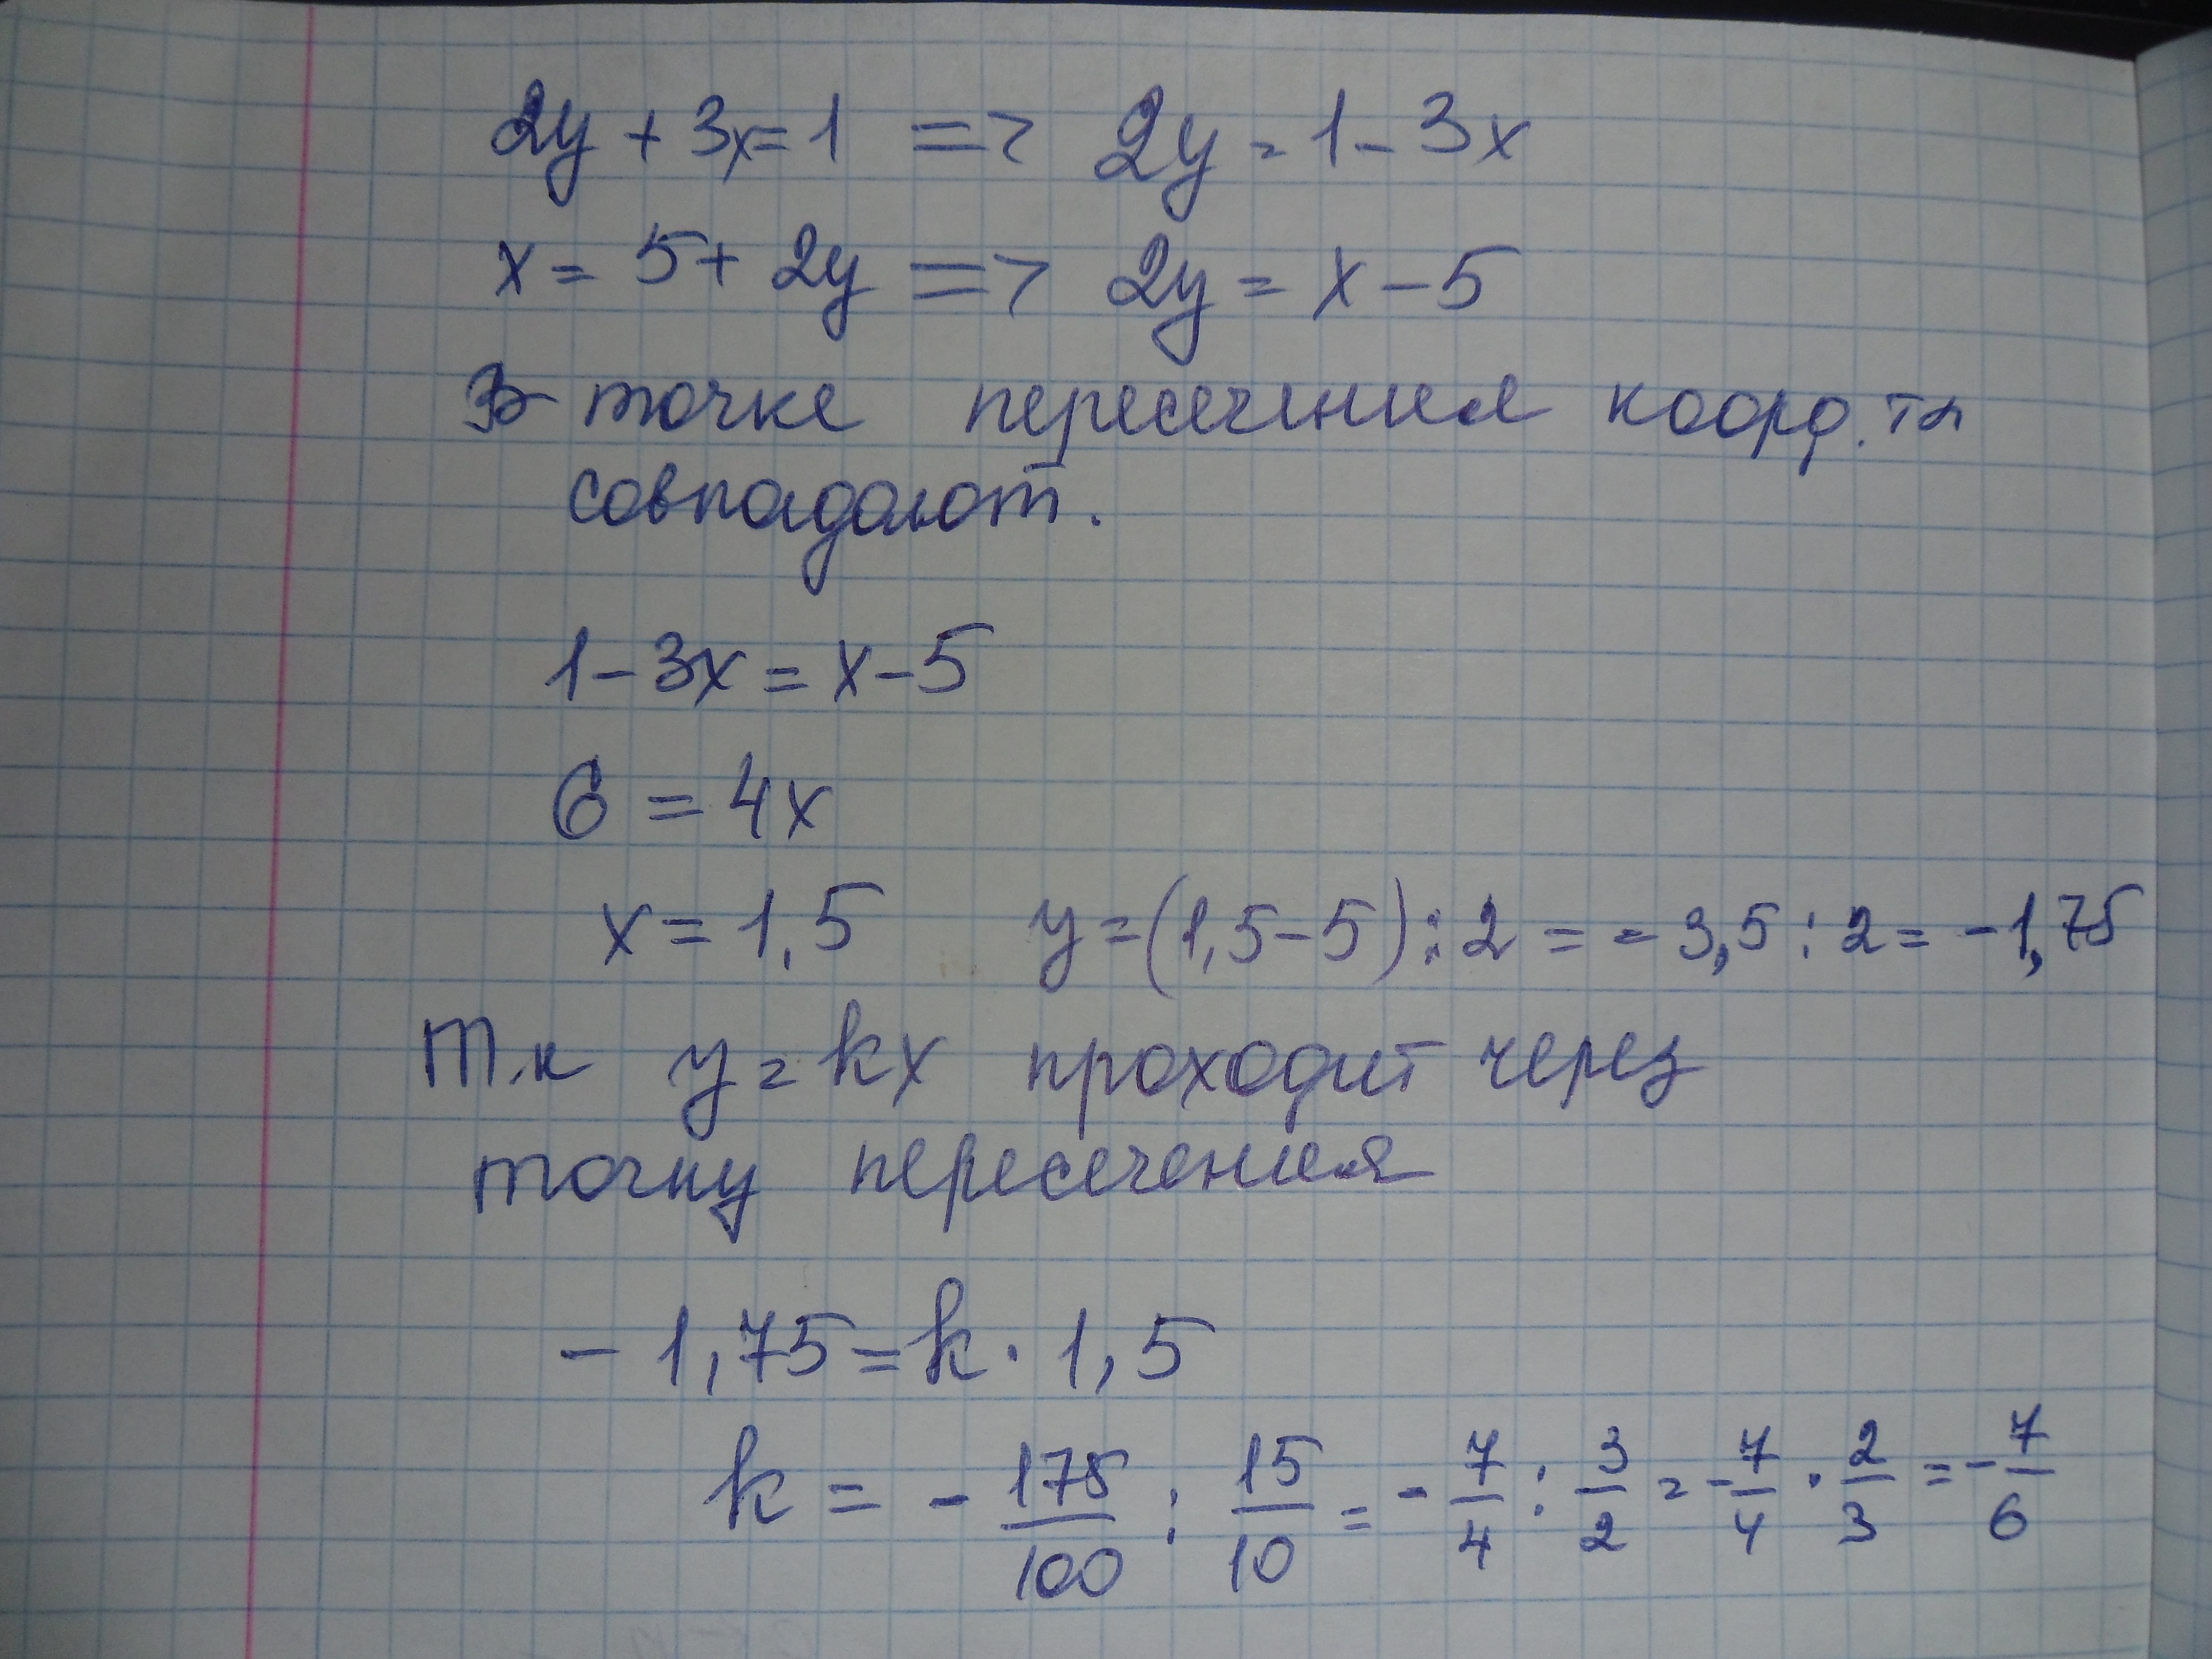 2y + 3x = 1 => 2y = 1 - 3x
x = 5 + 2y => 2y = x - 5
В точке пересечения коорд. ты
совпадают.
1 - 3x = x - 5
6 = 4x
x = 1,5 y = (1,5 - 5) : 2 = - 3,5 : 2 = - 1,75
Т.к y = kx проходит через
точку пересечения
- 1,75 = k · 1,5
k = - 175/100 : 15/10 = - 7/4 : 3/2 = - 7/4 · 2/3 = - 7/6